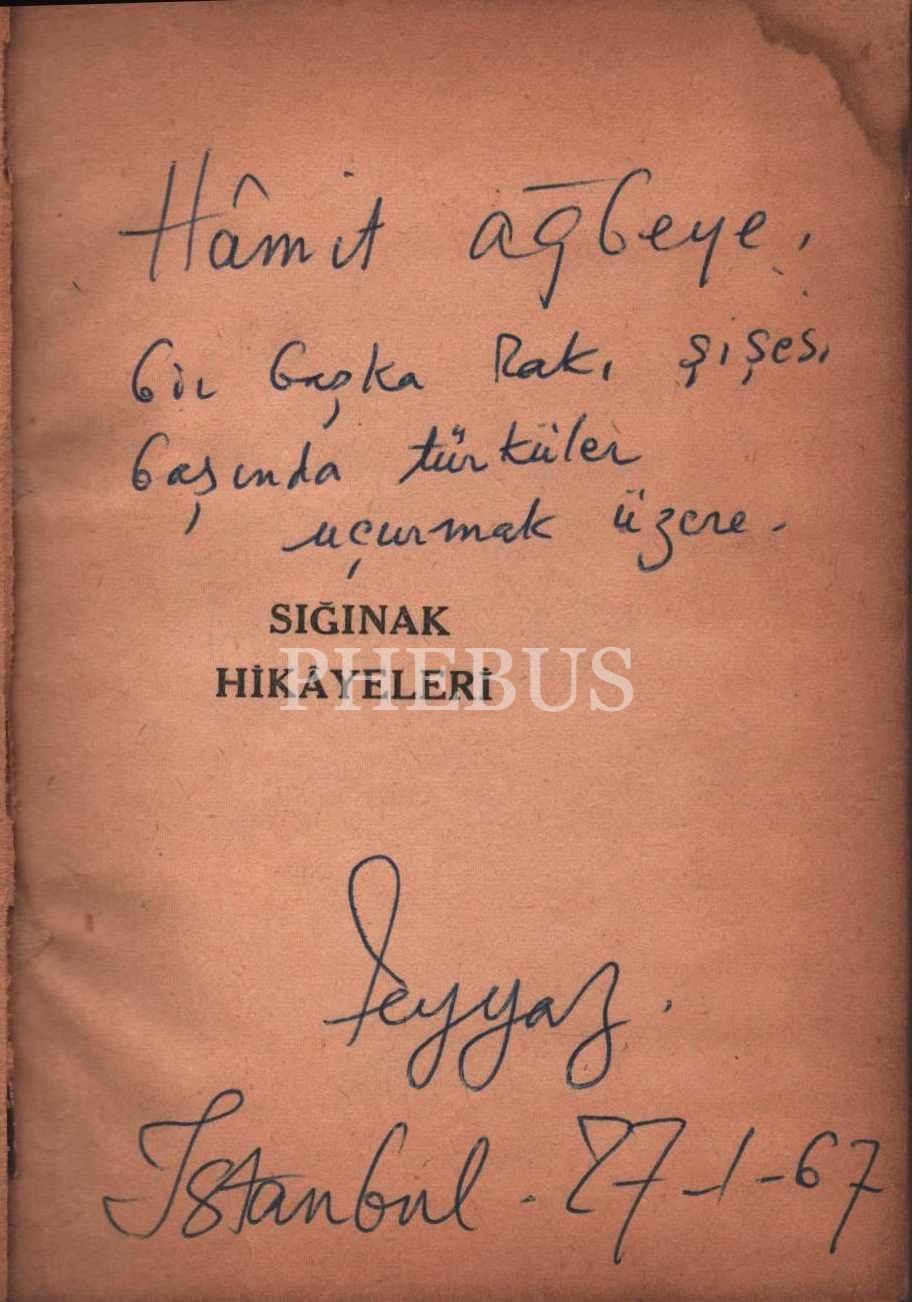 Hâmit ağbeye,
bir başka rakı şişesi
başında türküler
uçurmak üzere.
SIĞINAK
HİKÂYELERİ
PHEBUS
Feyyaz.
İstanbul - 27-1-67